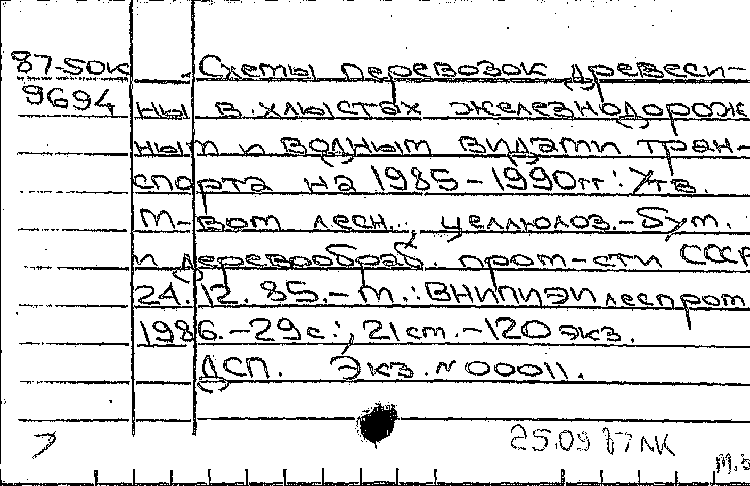 87-50к Схемы перевозок древеси-
9694 ны в хлыстах железнодорож
ным и водным видами тран-
спорта на 1985-1990гг: Утв.
М-вом лесн., целлюлоз.-бум.
и деревообраб. пром-сти СССР
24.12.85.-М.: ВНИПИЭИлеспром
1986.-29с:, 21см.-120экз.
ДСП. Экз. N 00011.
25.09 87